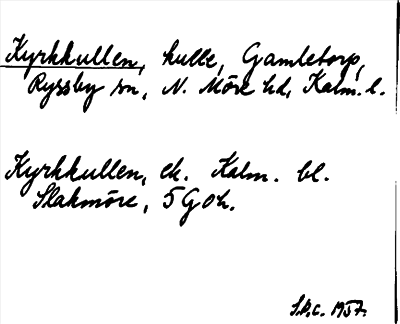 Kyrkkullen, kulle, Gamletorp,
Ryssby sn, N. Möre hd, Kalm. l.
Kyrkkullen, ek. Kalm. bl.
Slakmöre, 5G0h.
S.P.C. 1957.